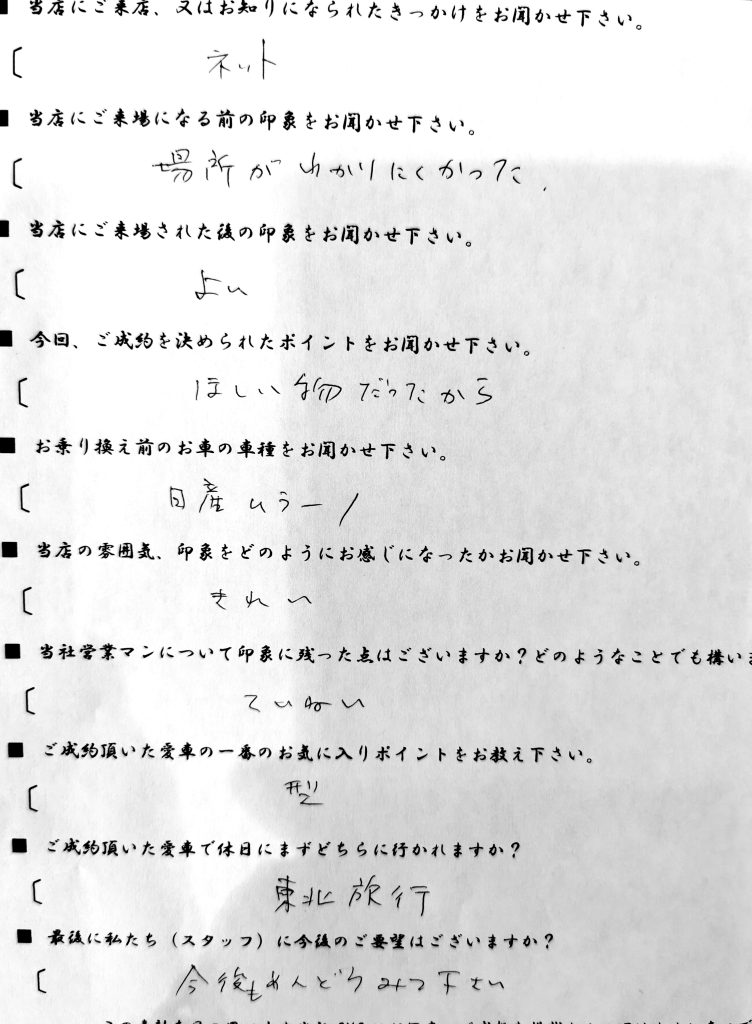 ■ 当店にご来店、又はお知りになられたきっかけをお聞かせ下さい。
〔 ネット
■ 当店にご来場になる前の印象をお聞かせ下さい。
〔 場所がわかりにくかった.
■ 当店にご来場された後の印象をお聞かせ下さい。
〔 よい
■ 今回、ご成約を決められたポイントをお聞かせ下さい。
〔 ほしい物だったから
■ お乗り換え前のお車の車種をお聞かせ下さい。
〔 日産ムラーノ
■ 当店の雰囲気、印象をどのようにお感じになったかお聞かせ下さい。
〔 きれい
■ 当社営業マンについて印象に残った点はございますか？どのようなことでも構いま
〔 ていねい
■ ご成約頂いた愛車の一番のお気に入りポイントをお教え下さい。
〔 型
■ ご成約頂いた愛車で休日にまずどちらに行かれますか？
〔 東北旅行
■ 最後に私たち（スタッフ）に今後のご要望はございますか？
〔 今後もめんどうみて下さい